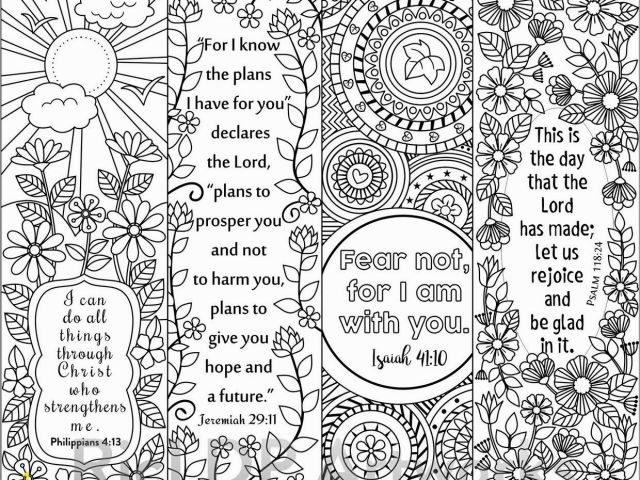 I can
do all
things
through
Christ
who
strengthens
me.
Philippians 4:13
“For I know
the plans
I have for you”
declares
the Lord,
“plans to
prosper you
and not
to harm you,
plans to
give you
hope and
a future.”
Jeremiah 29:11
Fear not,
for I am
with you.
Isaiah 41:10
This is
the day
that the
Lord
has made;
let us
rejoice
and
be glad
in it.
PSALM 118:24